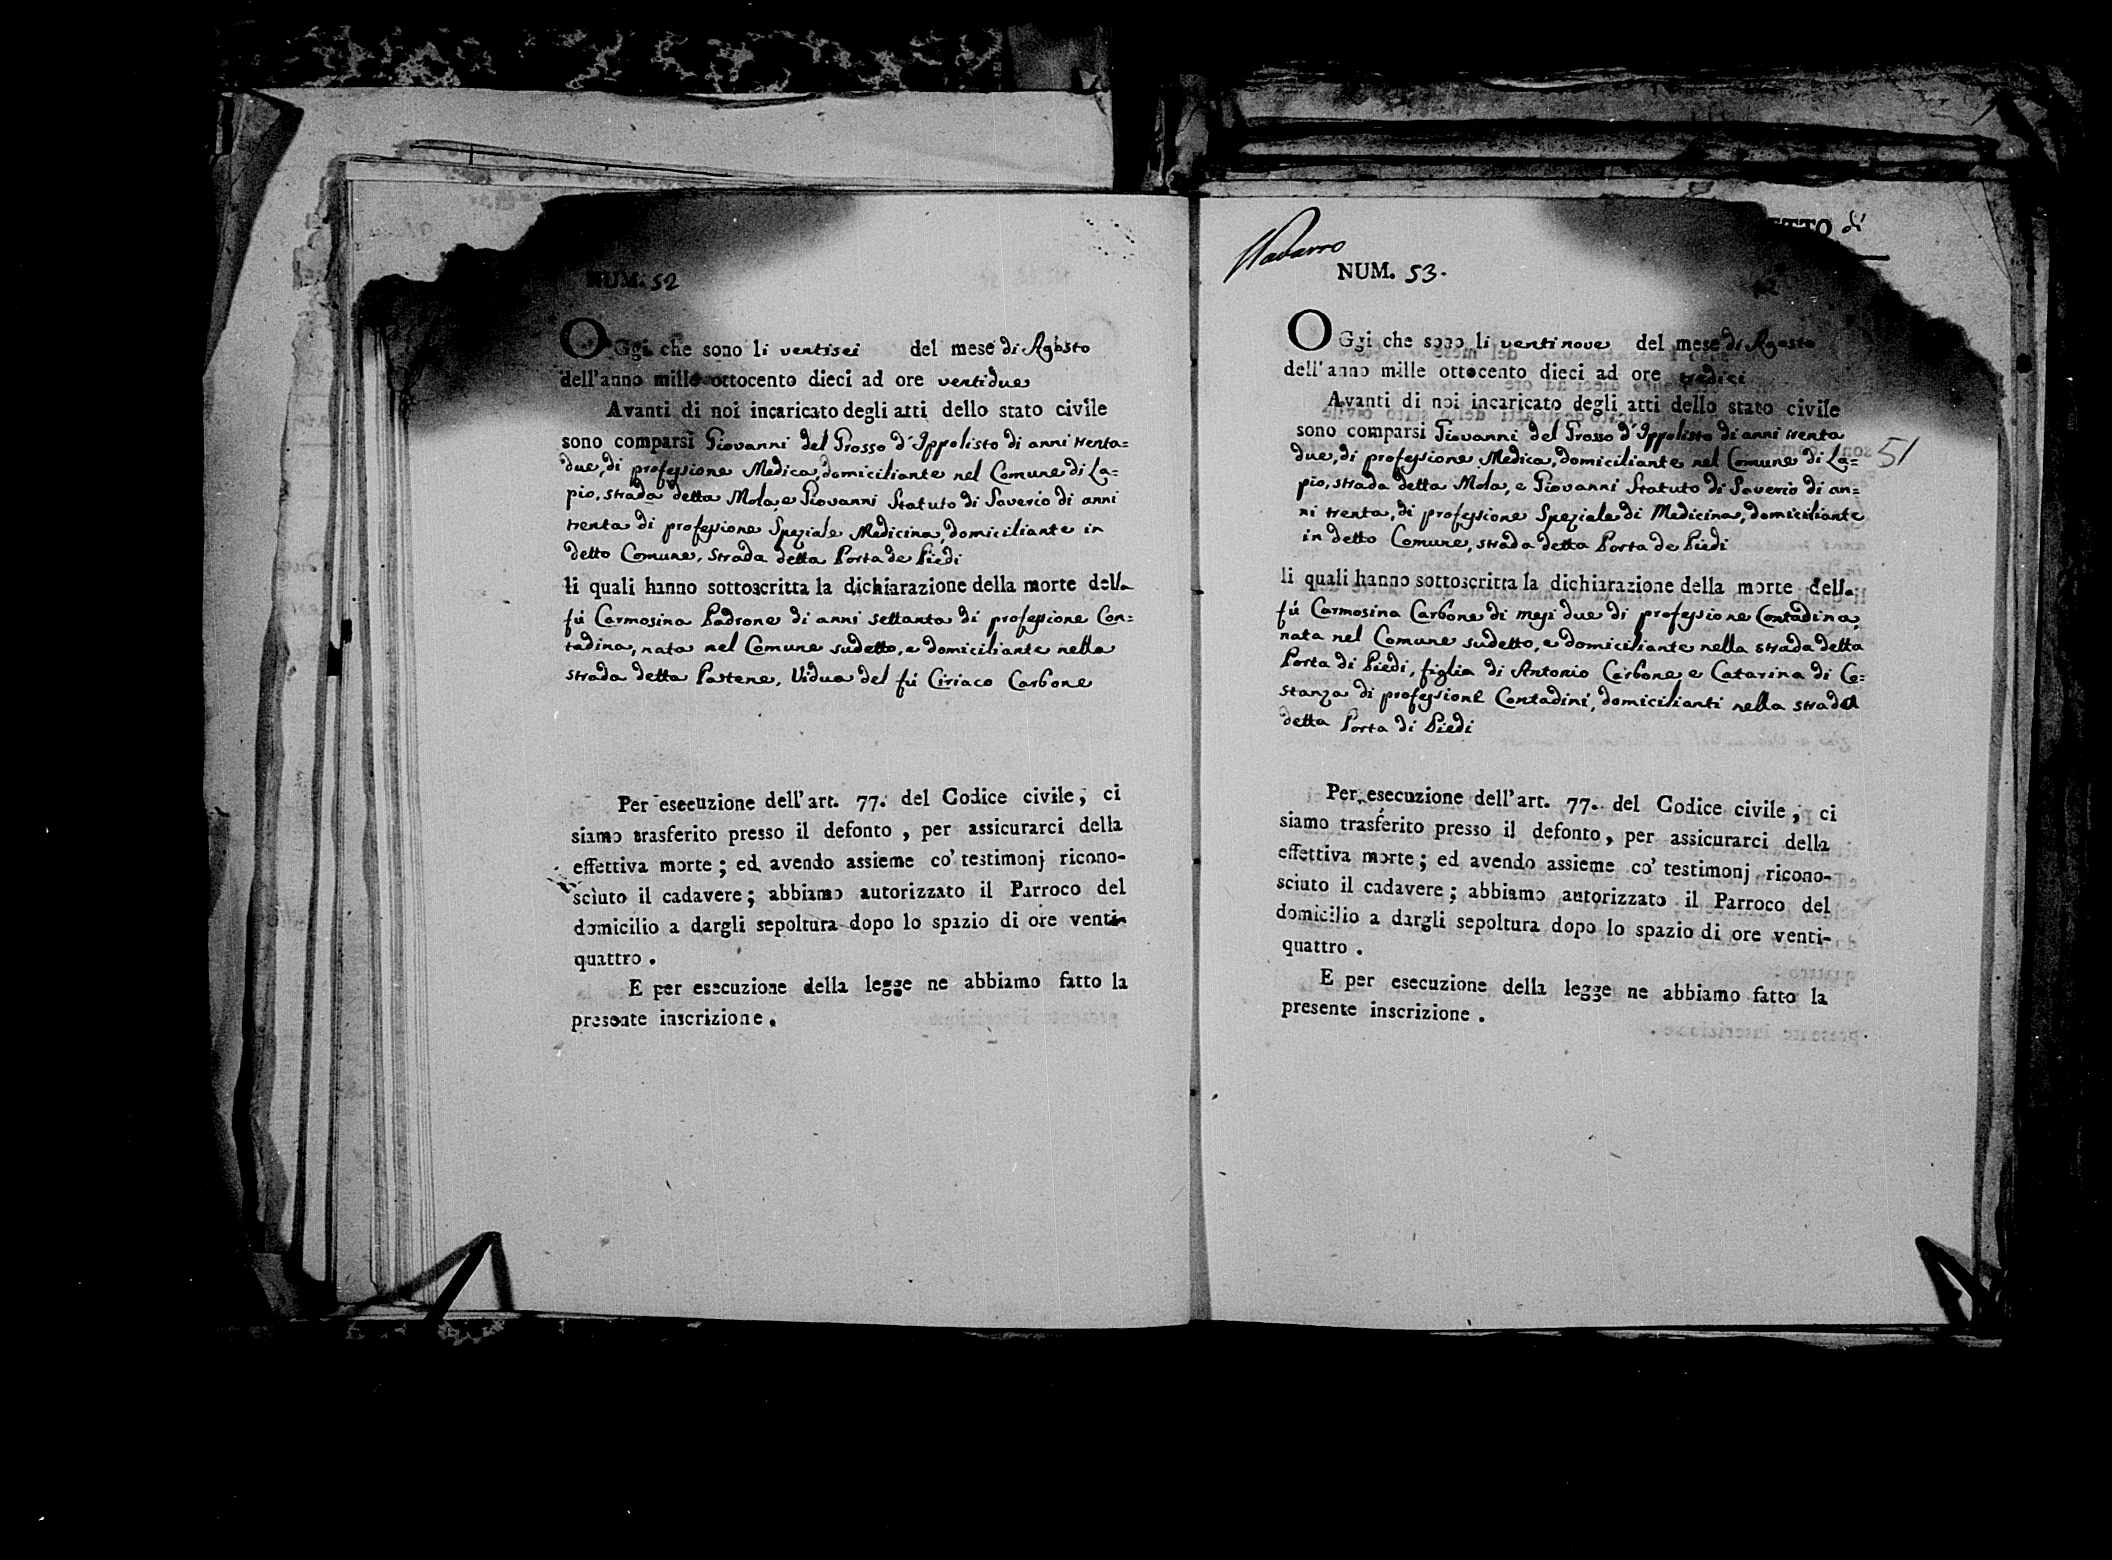 NUM. 52
OGgi che sono li ventisei del mese di Agosto
dell'anno mille ottocento dieci ad ore ventidue
Avanti di noi incaricato degli atti dello stato civile
sono comparsi Giovanni del Grosso d'Ippolisto di anni trenta=
due, di professione Medica, domiciliante nel Comune di La=
pio, strada detta Mola, e Giovanni Statuto di Saverio di anni
trenta di professione Speziale Medicina, domiciliante in
detto Comune, strada detta Porta de Piedi
li quali hanno sottoscritta la dichiarazione della morte della
fú Carmosina Padrone di anni settanta di professione Con=
tadina, nata nel Comune sudetto, e domiciliante nella
strada detta Pastene, Vidua del fú Ciriaco Carbone
Per esecuzione dell'art. 77. del Codice civile, ci
siamo trasferito presso il defonto, per assicurarci della
effettiva morte; ed avendo assieme co' testimonj ricono-
sciuto il cadavere; abbiamo autorizzato il Parroco del
domicilio a dargli sepoltura dopo lo spazio di ore venti-
quattro.
E per esecuzione della legge ne abbiamo fatto la
presente inscrizione.
Navarro
TTO di
NUM. 53.
OGgi che sono li ventinove del mese di Agosto
dell'anno mille ottocento dieci ad ore tredici
Avanti di noi incaricato degli atti dello stato civile
sono comparsi Giovanni del Grosso d'Ippolisto di anni trenta
51
due, di professione Medica, domiciliante nel Comune di La=
pio, strada detta Mola, e Giovanni Statuto di Saverio di an=
ni trenta, di professione Speziale di Medicina, domiciliante
in detto Comune, strada detta Porta de Piedi
li quali hanno sottoscritta la dichiarazione della morte della
fú Carmosina Carbone di mesi due di professione Contadina,
nata nel Comune sudetto, e domiciliante nella strada detta
Porta di Piedi, figlia di Antonio Carbone e Catarina di Co=
stanza di professione Contadini, domicilianti nella strada
detta Porta di Piedi
Per esecuzione dell'art. 77. del Codice civile, ci
siamo trasferito presso il defonto, per assicurarci della
effettiva morte; ed avendo assieme co' testimonj ricono-
sciuto il cadavere; abbiamo autorizzato il Parroco del
domicilio a dargli sepoltura dopo lo spazio di ore venti-
quattro.
E per esecuzione della legge ne abbiamo fatto la
presente inscrizione.